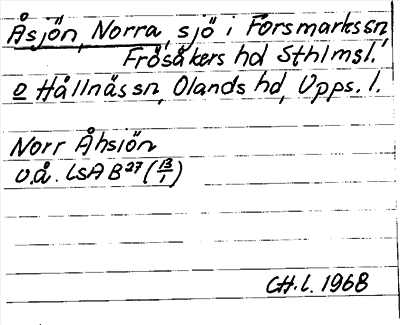 Åsjön, Norra, sjö i Forsmarkssn,
Frösåkers hd Sthlmsl.
o Hållnässn, Olands hd, Upps. l.
Norr Åhsiön
u.å. LSA B27 (B/1)
CH.l. 1968